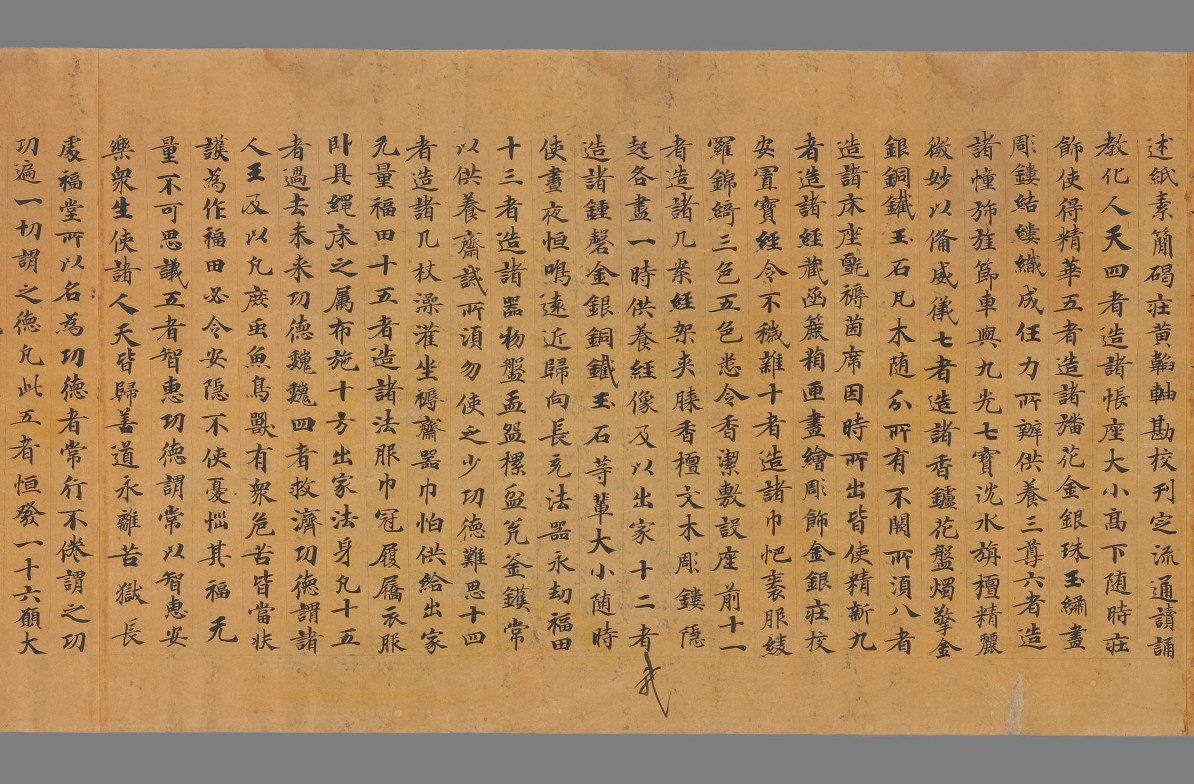 述紙素簡碣莊黃韜軸勘挍刊定流通讀誦
教化人天四者造諸帳座大小髙下随時莊
飾使得精華五者造諸旛花金銀珠玉繡畫
彫鏤結縷織成任力所辦供養三尊六者造
諸幢斾旌節車輿九光七寶沈水旃檀精麗
微妙以俻威儀七者造諸香鑪花盤燭擎金
銀銅鐵玉石凡木随所有不闕所湏八者
造諸床座氎褥茵席因時所出皆使精新九
者造諸經藏函簏箱匣畫繪彫飾金銀莊挍
安置寶經令不穢雜十者造諸巾帊裹服綾
羅錦綺三色五色悉令香潔敷設座前十一
者造諸几案經架夾膝香檀文木彫鏤隱
起各盡一時供養經像及以出家十二者
造諸鍾磬金銀銅鐵玉石等輩大小随時
使晝夜恒鳴遠近歸向長充法器永劫福田
十三者造諸器物盤盂盌櫑盆瓮釜鑊常
以供養齋誡所湏勿使乏少功德難思十四
者造諸几杖澡灌坐褥齋器巾怕供給出家
无量福田十五者造諸法服巾冠履屩衣服
卧具繩床之屬布施十方出家法身凡十五
者過去未来功德巍巍四者救濟功德謂諸
人王及以凡庶虫魚鳥獸有衆危苦皆當扶
護為作福田必令安隱不使憂惱其福无
量不可思議五者智恵功德謂常以智恵安
樂衆生使諸人天皆歸善道永離苦獄長
處福堂所以名為功德者常行不倦謂之功
功遍一切謂之德凡此五者恒發一十六願大